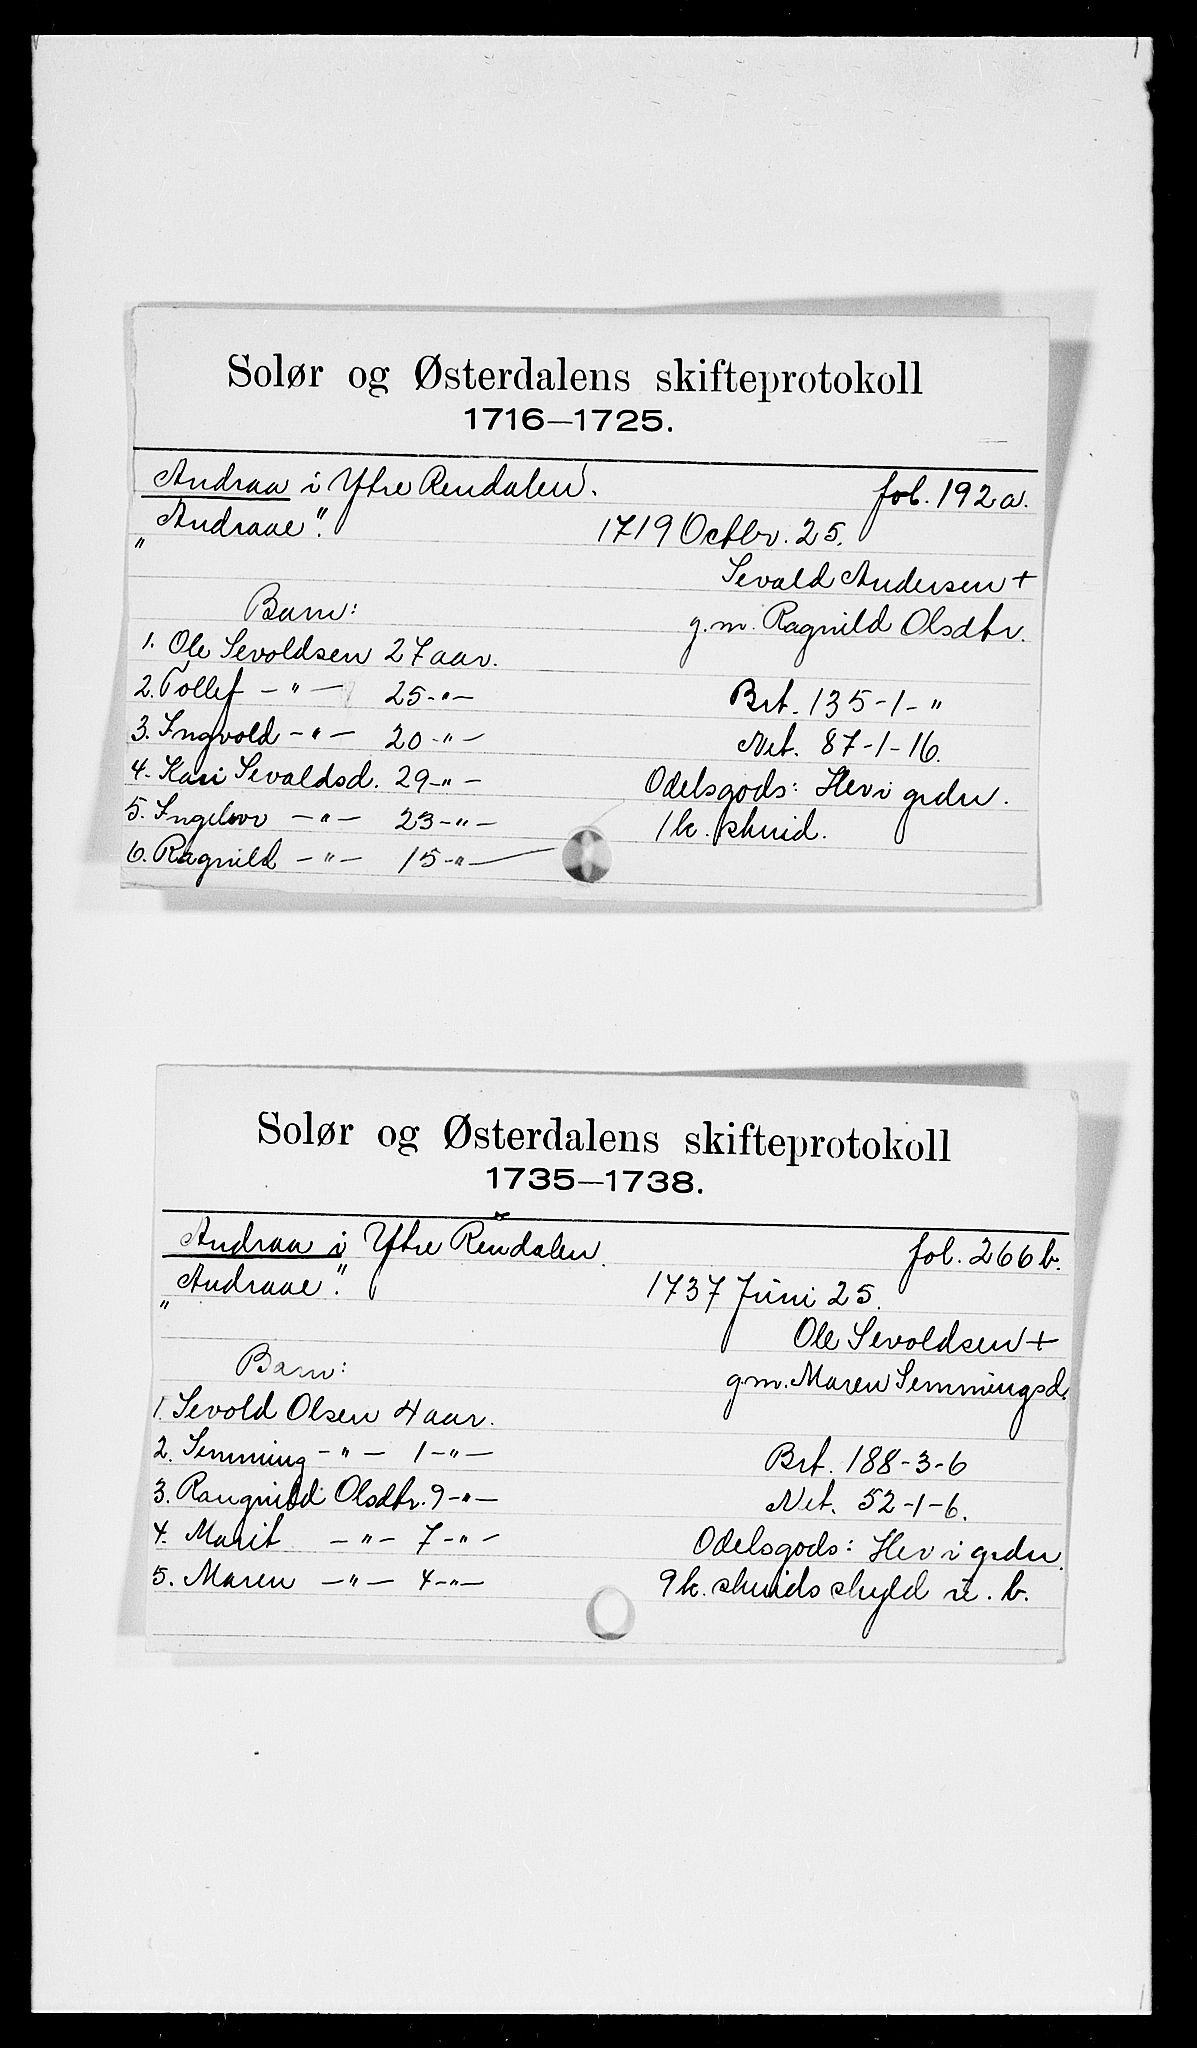 Solør og Østerdalens skifteprotokoll
1716—1725.
Andraa i Ytre Rendalen.
fol. 192a.
„Andraae".
1719 Octbr. 25.
Sevald Andersen +
Barn:
g.m. Ragnild Olsdtr.
1. Ole Sevoldsen 27 aar.
2. Tollef — " — 25 - " —
Brt. 135-1- "
3. Ingvold — " — 20 - " —
Net. 87-1-16.
4. Kari Sevaldsd. 29 - " —
Odelsgods: Her i grdn.
5. Ingebor — " — 23 - " —
1 k. skind.
6. Ragnild — " — 15 - " —
Solør og Østerdalens skifteprotokoll
1735—1738.
Andraa i Ytre Rendalen.
fol. 266 b.
„Andraae".
1737 Juni 25.
Ole Sevoldsen +
Barn:
g.m. Maren Semmingsd.
1. Sevold Olsen 4 aar.
2. Semming — " — 1 - " —
Brt. 188-3-6
3. Rangnild Olsdtr. 9 - " —
Net. 52-1-6.
4. Marit — " — 7 - " —
Odelsgods: Her i grdn.
5. Maren — " — 4 - " —
9 k. skinds skyld u. b.